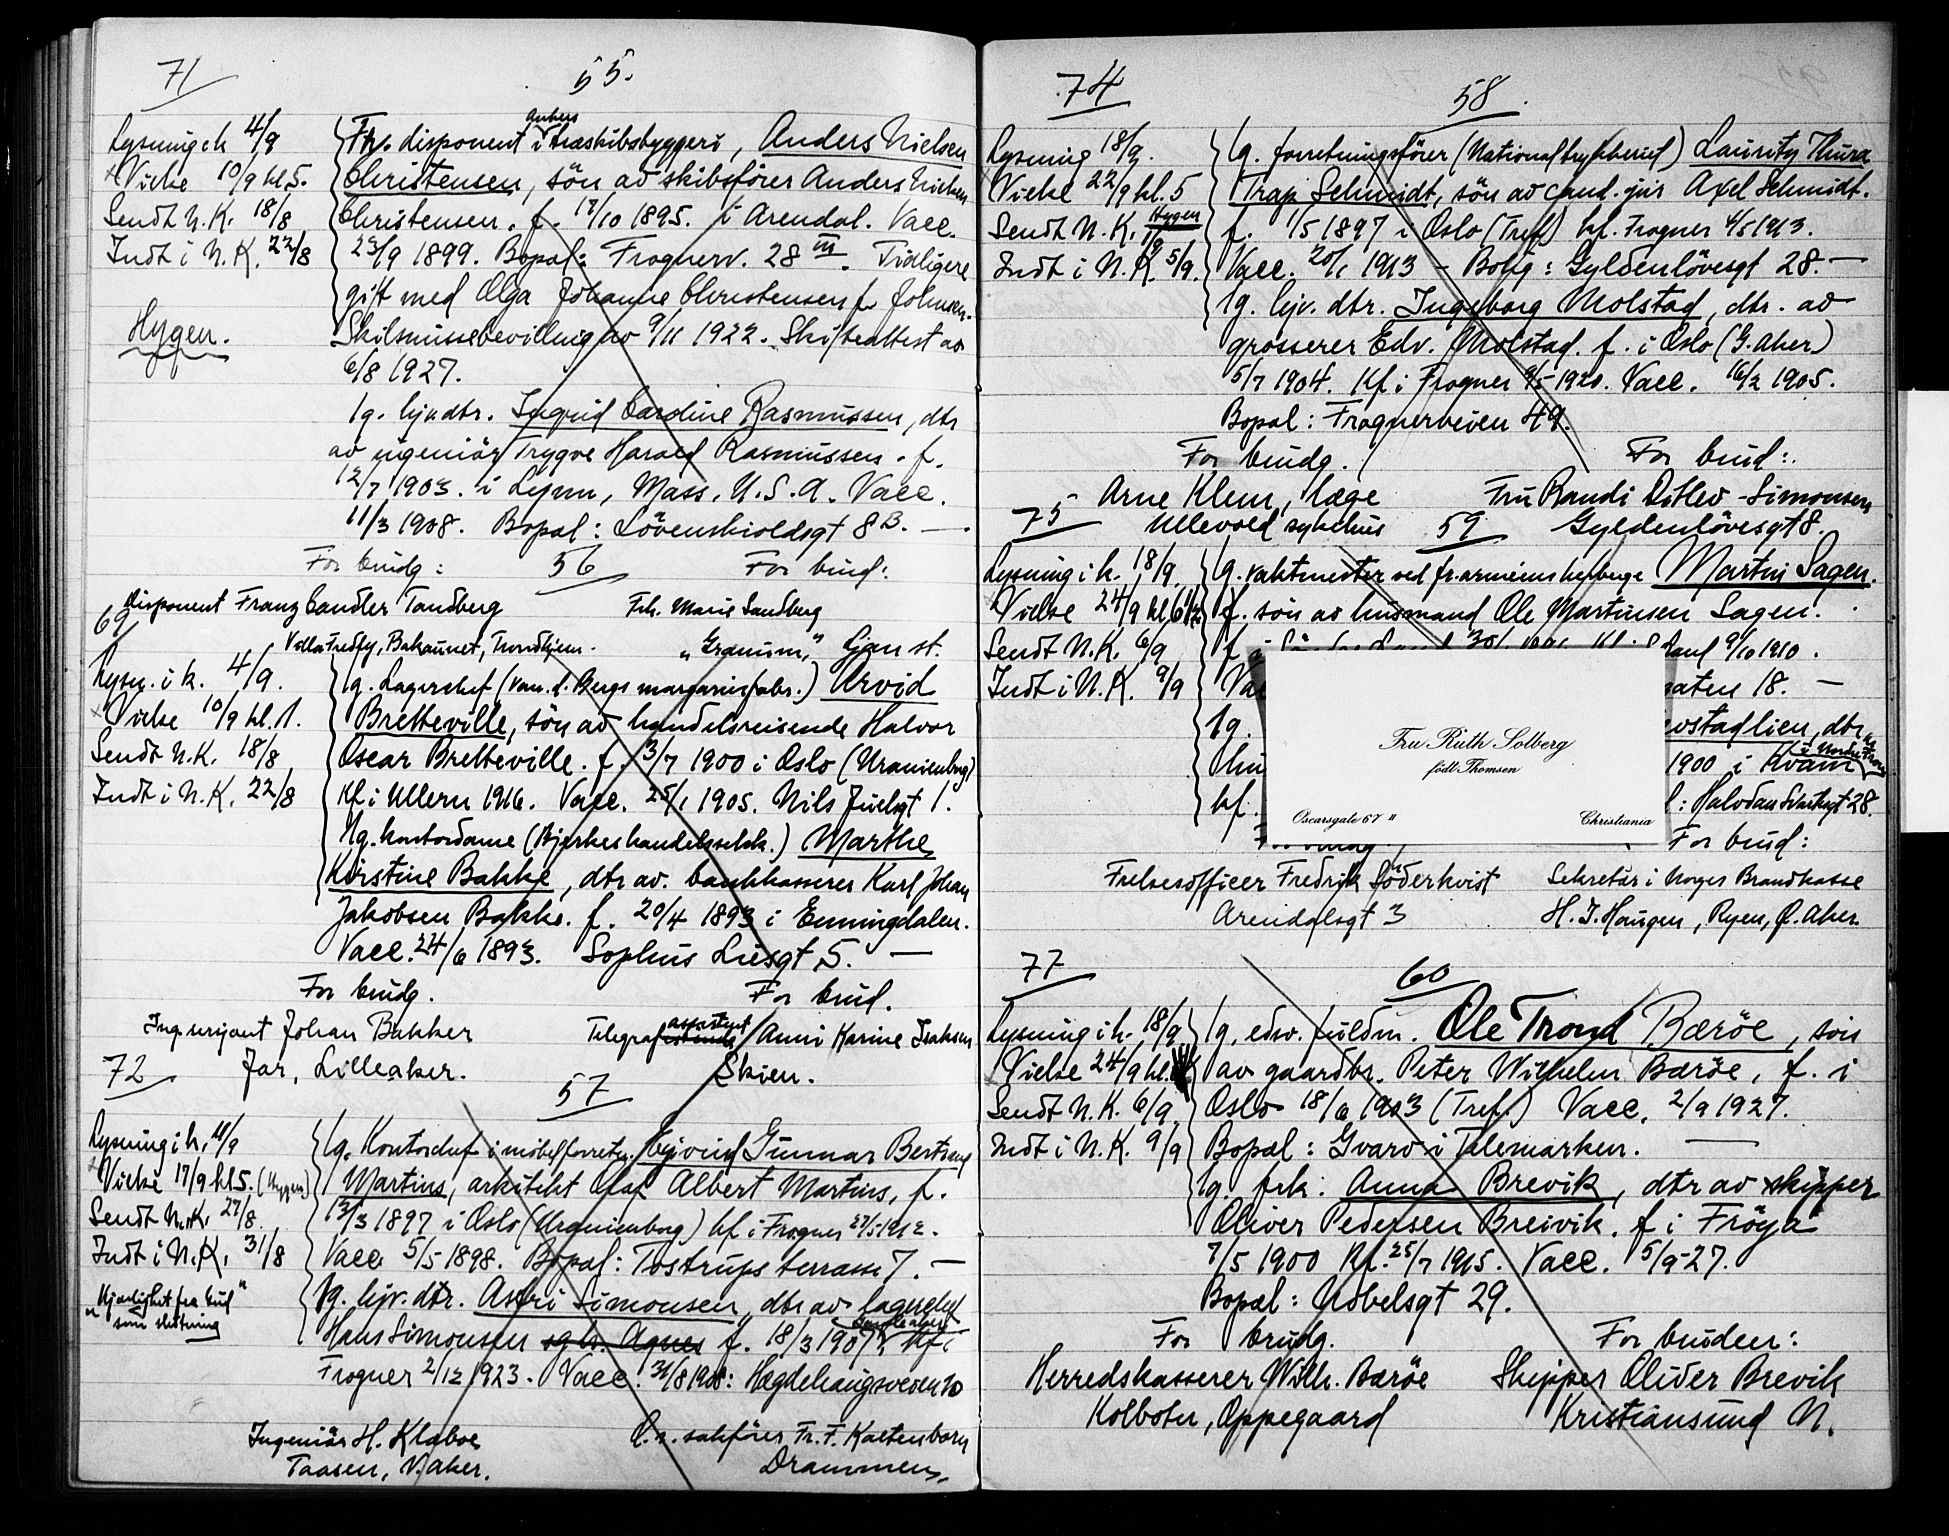 71
55.
Lysning i k 4/9
Vielse 10/9 kl. 5.
Sendt N. K. 18/8
Indt i N. K. 22/8
Hygen.
disponent i Ankers træskibsbyggeri, Anders Nielsen
Christensen, sön av skibsförer Anders Nielsen
Christensen. f. /10 1895. i Arendal. Vacc.
23/9 1899. Bopæl: Frognerv. 28 III. Tidligere
gift med Olga Johanne Christensen f. Johnsen.
Skilsmissebevilling av 9/11 1922. Skifteattest av
6/8 1927.
Ig. hjv. dtr. Ingrid Caroline Rasmussen, dtr
av ingeniör Trygve Harald Rasmussen. f.
12/7 1903. i Lynn, Mass. U.S.A. Vacc.
11/3 1908. Bopæl: Lövenskioldsgt 8B. —
For brudg:
For brud:
disponent Franz Candler Tandberg
Villa Fredly, Bakaunet, Trondhjem.
Frk. Marie Sandberg
"Granum", Ljan st.
56
69
Lysn. i k. 4/9.
Vielse 10/9 kl. 1.
Sendt N. K. 18/8
Indt i N. K. 22/8
Ig. Lagerchef (van d. Bergs margarinfabr.) Arvid
Bretteville, sön av handelsreisende Halvor
Oscar Bretteville. f. 3/7 1900 i Oslo (Uranienborg)
kf i Ullern 1916. Vacc. 25/1 1905. Nils Juelsgt 1.
Ug. kontordame (Bjerkes handelsselsk.) Marthe
Kirstine Bakke, dtr av. bankkasserer Karl Johan
Jakobsen Bakke. f. 20/4 1893 i Enningdalen.
Vacc. 24/6 1893. Sophus Liesgt 5. —
For brudg.
For brud.
Johan Bakker
Jar, Lilleaker.
Telegrafassistent Anni Karine Isaksen
Skien.
72
57
Lysning i k. 4/9
Vielse 17/9 kl 5. (Hygen)
Sendt N. K. 27/8.
Indt i N. K. 31/8
"Kjærlighet fra Gud"
som slutning
Ig. Kontorchef i möbelforretn. Eyvind Gunnar Bertrand
Martins, arkitekt Olaf Albert Martins, f.
13/3 1897 i Oslo (Uranienborg) kf i Frogner 1912.
Vacc 5/5 1898. Bopæl: Tostrups terrasse 7. —
Ig. hjv. dtr. Astri Simonsen, dtr av lagerchef
Hans Simonsen f. 18/3 1907 kf i
Frogner 2/12 1923. Vacc. 31/8 1908: Hægdehaugsveien 20
Ingeniör H. Klaboe
Taasen, V. Aker.
O. r. sakförer Fr. F. Kaltenborn
Drammen.
74
58
Lysning 18/9.
Vielse 22/9 kl. 5
Hygen
Sendt N. K. 1/9
Indt i N. K. 5/9.
Ig. forretningsförer (Nationaltrykkeriet) Lauritz Thura
Trap Schmidt, sön av cand. jur Axel Schmidt.
f. 1/5 1897 i Oslo (Tref) kf. Frogner 4/5 1913.
Vacc. 20/1 1913 - Bolig: Gyldenlövesgt 28. —
Ig. hjv. dtr. Ingeborg Molstad, dtr. av
grosserer Edv. Molstad. f. i Oslo (G. Aker)
5/7 1904. Kf. i Frogner 9/5 1920. Vacc. 16/2 1905.
Bopæl: Frognerveien 49.
For brudg.
For brud:
Arne Klem, læge
Ullevaal sykehus
Fru Randi Ditlev-Simonsen
Gyldenlövesgt 8.
75
59
Lysning i k. 18/9
Vielse 24/9 kl. 6½
Sendt N. K. 6/9
Indt i N. K. 9/9
Ig. vaktmester ved fr.armeens herberge Martin Sagen.
f. sön av husmand Ole Martinsen Sagen.
Land 9/10 1910.
Va
gaten 18. —
Ig.
vstadlien, dtr
1900 i Kvam
kf.
: Halvdan Svartesgt 28.
Fru Ruth Solberg
født Thomsen
Oscarsgate 67 II
Christiania
For brud:
Frelsesofficer Fredrik Söderkvist
Arendalsgt 3
Sekretær i Norges Brandkasse
H. J. Haugen, Ryen, Ö. Aker.
77
60
Lysning i k. 18/9
Vielse 24/9 kl.
Sendt N. K. 6/9.
Indt i N. K. 9/9
Ig. edsv. fuldm. Ole Trond Bæröe, sön
av gaardbr. Peter Wilhelm Bæröe, f. i
Oslo 18/6 1903 (Tref.) Vacc. 2/9 1927.
Bopæl: Gvarv i Telemarken. —
Ig. frk. Anna Brevik, dtr av skipper
Oliver Pedersen Breivik. f i Fröya
7/5 1900 Kf. 25/7 1915. Vacc. 5/9-27.
Bopæl: Nobelsgt 29.
For brudg.
For bruden:
Herredskasserer Wilh. Bæröe
Kolbotn, Oppegaard
Skipper Oliver Brevik
Kristiansund N.